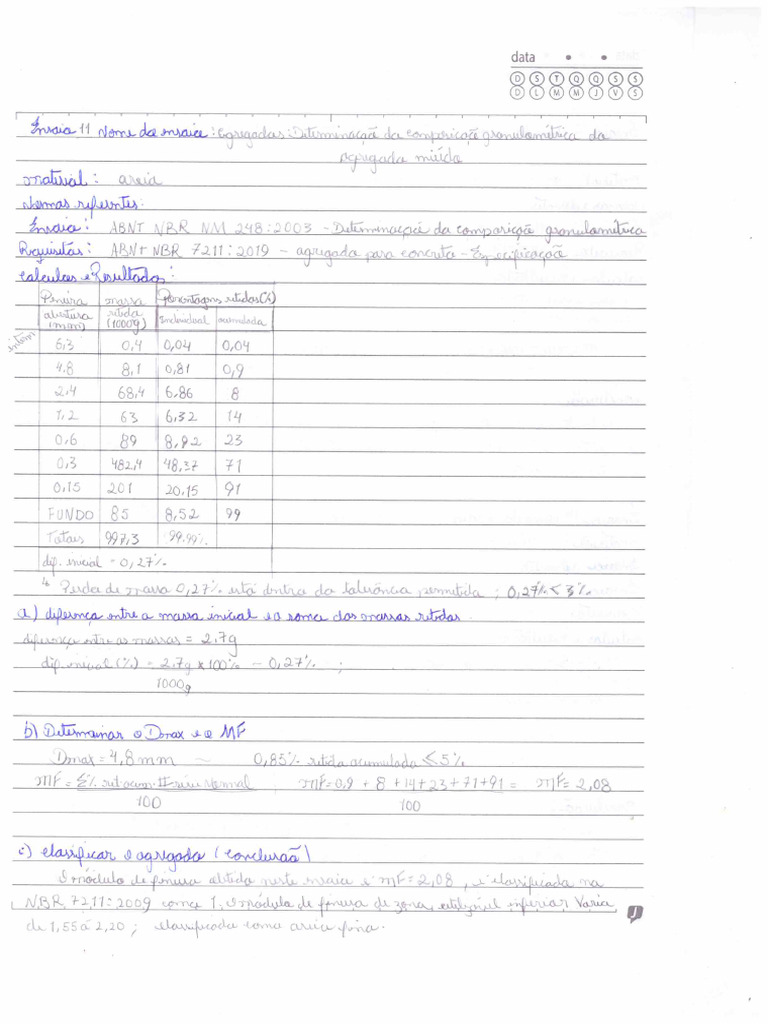 data
D S T Q Q S S
D L M M J V S
Ensaio 11 Nome do ensaio: Agregados: Determinação da composição granulométrica do
agregado miúdo
Material: areia
Normas referentes:
Ensaio: ABNT NBR NM 248:2003 - Determinação da composição granulométrica
Requisitos: ABNT NBR 7211:2019 - agregado para concreto - Especificação
Cálculos e Resultados:
Peneira massa Porcentagens retidas (%)
abertura (mm) retida (1000g) Individual acumulada
interm 6,3 0,4 0,04 0,04
4.8 8,1 0,81 0,9
2,4 68,4 6.86 8
1,2 63 6,32 14
0,6 89 8,92 23
0,3 482,4 48,37 71
0,15 201 20,15 91
FUNDO 85 8,52 99
Totais 997,3 99.99%
dif. inicial = 0,27%
↳ Perda de massa 0,27% está dentro da tolerância permitida; 0,27% < 3%
a) diferença entre a massa inicial e a soma das massas retidas.
diferença entre as massas = 2,7g
dif. inicial (%) = 2,7g x 100% - 0,27% ;
1000g
b) Determinar o Dmax e o MF
Dmax = 4,8 mm - 0,85% retida acumulada ≤ 5%
MF = Σ% ret. acum. # série normal ; MF = 0,9 + 8 + 14 + 23 + 71 + 91 = MF = 2,08
100 100
c) classificar o agregado (conclusão)
O módulo de finura obtido neste ensaio é MF = 2,08, é classificada na
NBR 7211:2009 como 1. O módulo de finura de zona utilizável inferior varia
de 1,55 á 2,20; classificada como areia fina.